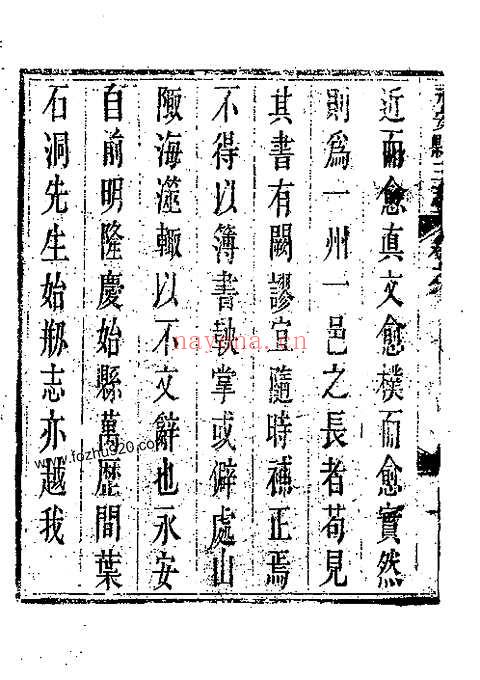 近而愈真文愈樸而愈實然
則爲一州一邑之長者苟見
其書有闕謬宜隨時補正焉
不得以簿書執掌或僻處山
陬海澨輒以不文辭也永安
自前明隆慶始縣萬歷間葉
石洞先生始刱志亦越我
nayona.cn
www.fozhu920.com